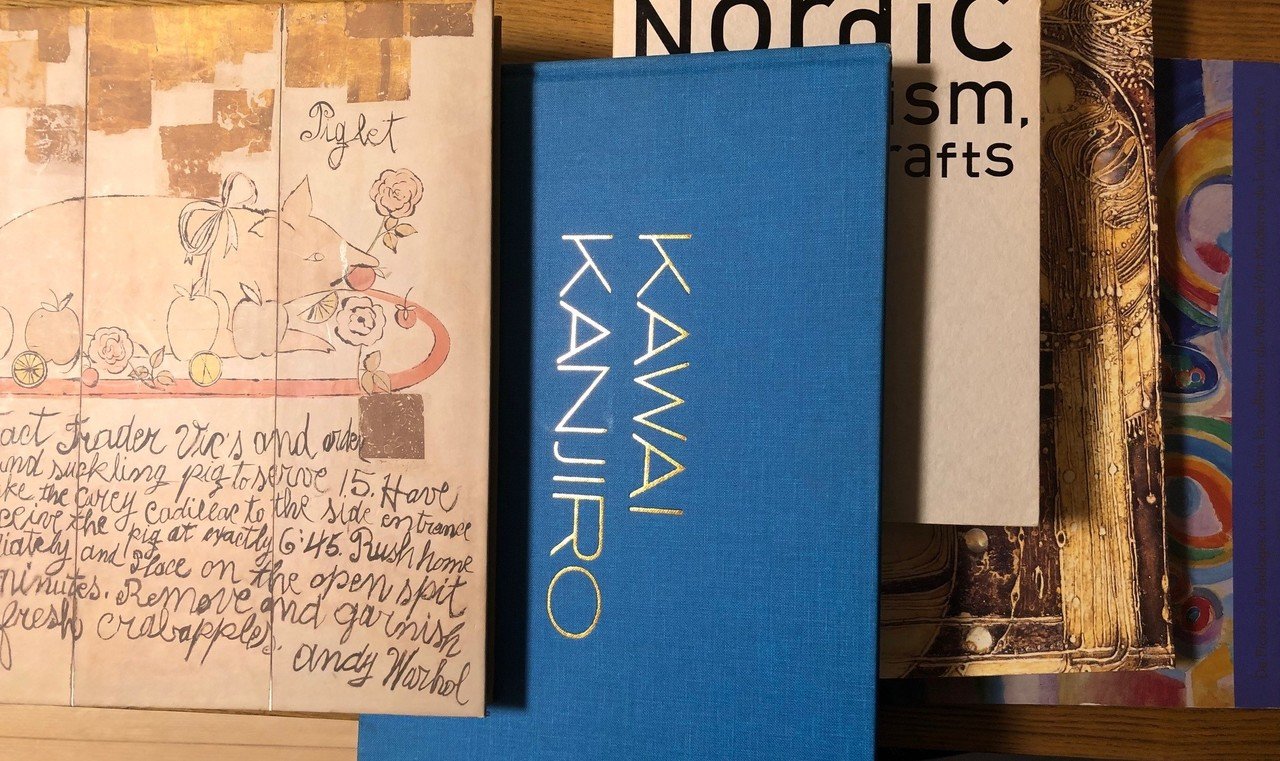 Piglet
tact Trader Vic's and order
and suckling pig to serve 15. Have
ke the Carey Cadillac to the side entrance
ceive the pig at exactly 6:45. Rush home
diately and place on the open spit
minutes. Remove and garnish
fresh crabapples.
Andy Warhol
KAWAI
KANJIRO
Nordic
ism,
rafts